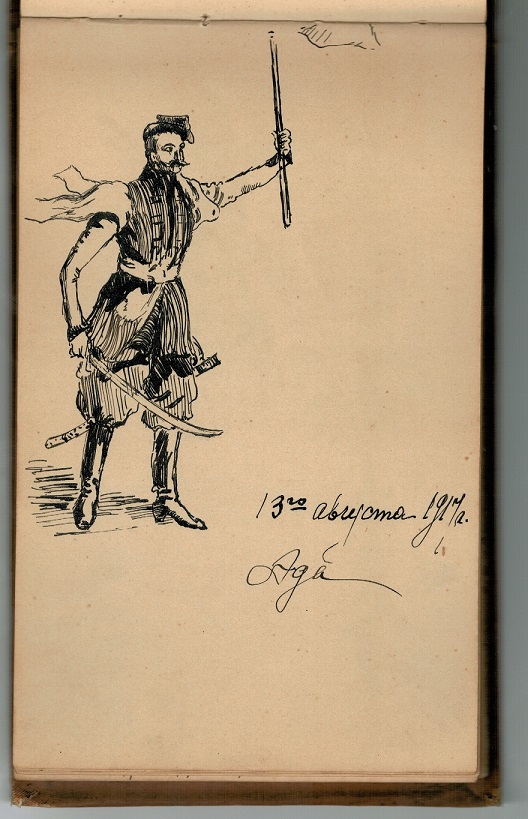 13го августа 1917г.
Ада